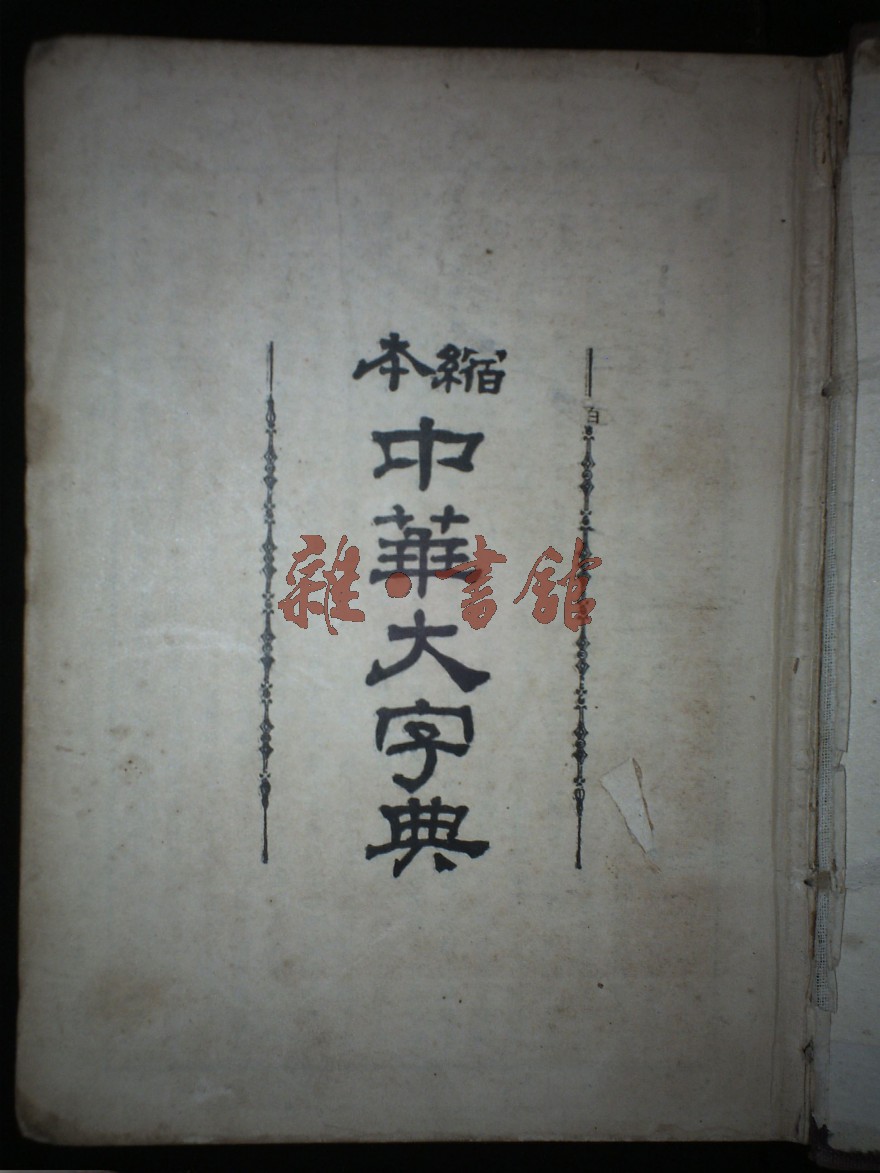 縮本
中華大字典
雜·書館